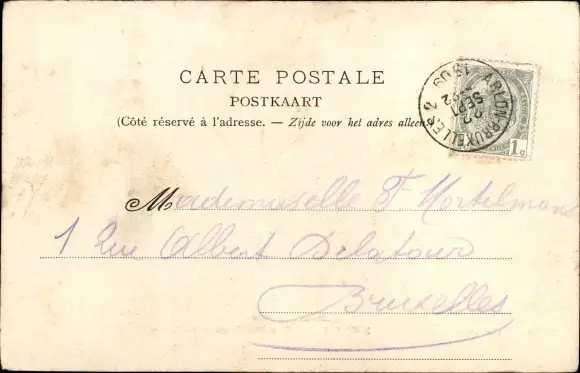 CARTE POSTALE
POSTKAART
(Côté réservé à l'adresse. — Zijde voor het adres alleen
ARLON-BRUXELLES 2
22
SEPT
1 C
Mademoiselle F Mortelmans
1 Rue Albert Delatour
Bruxelles